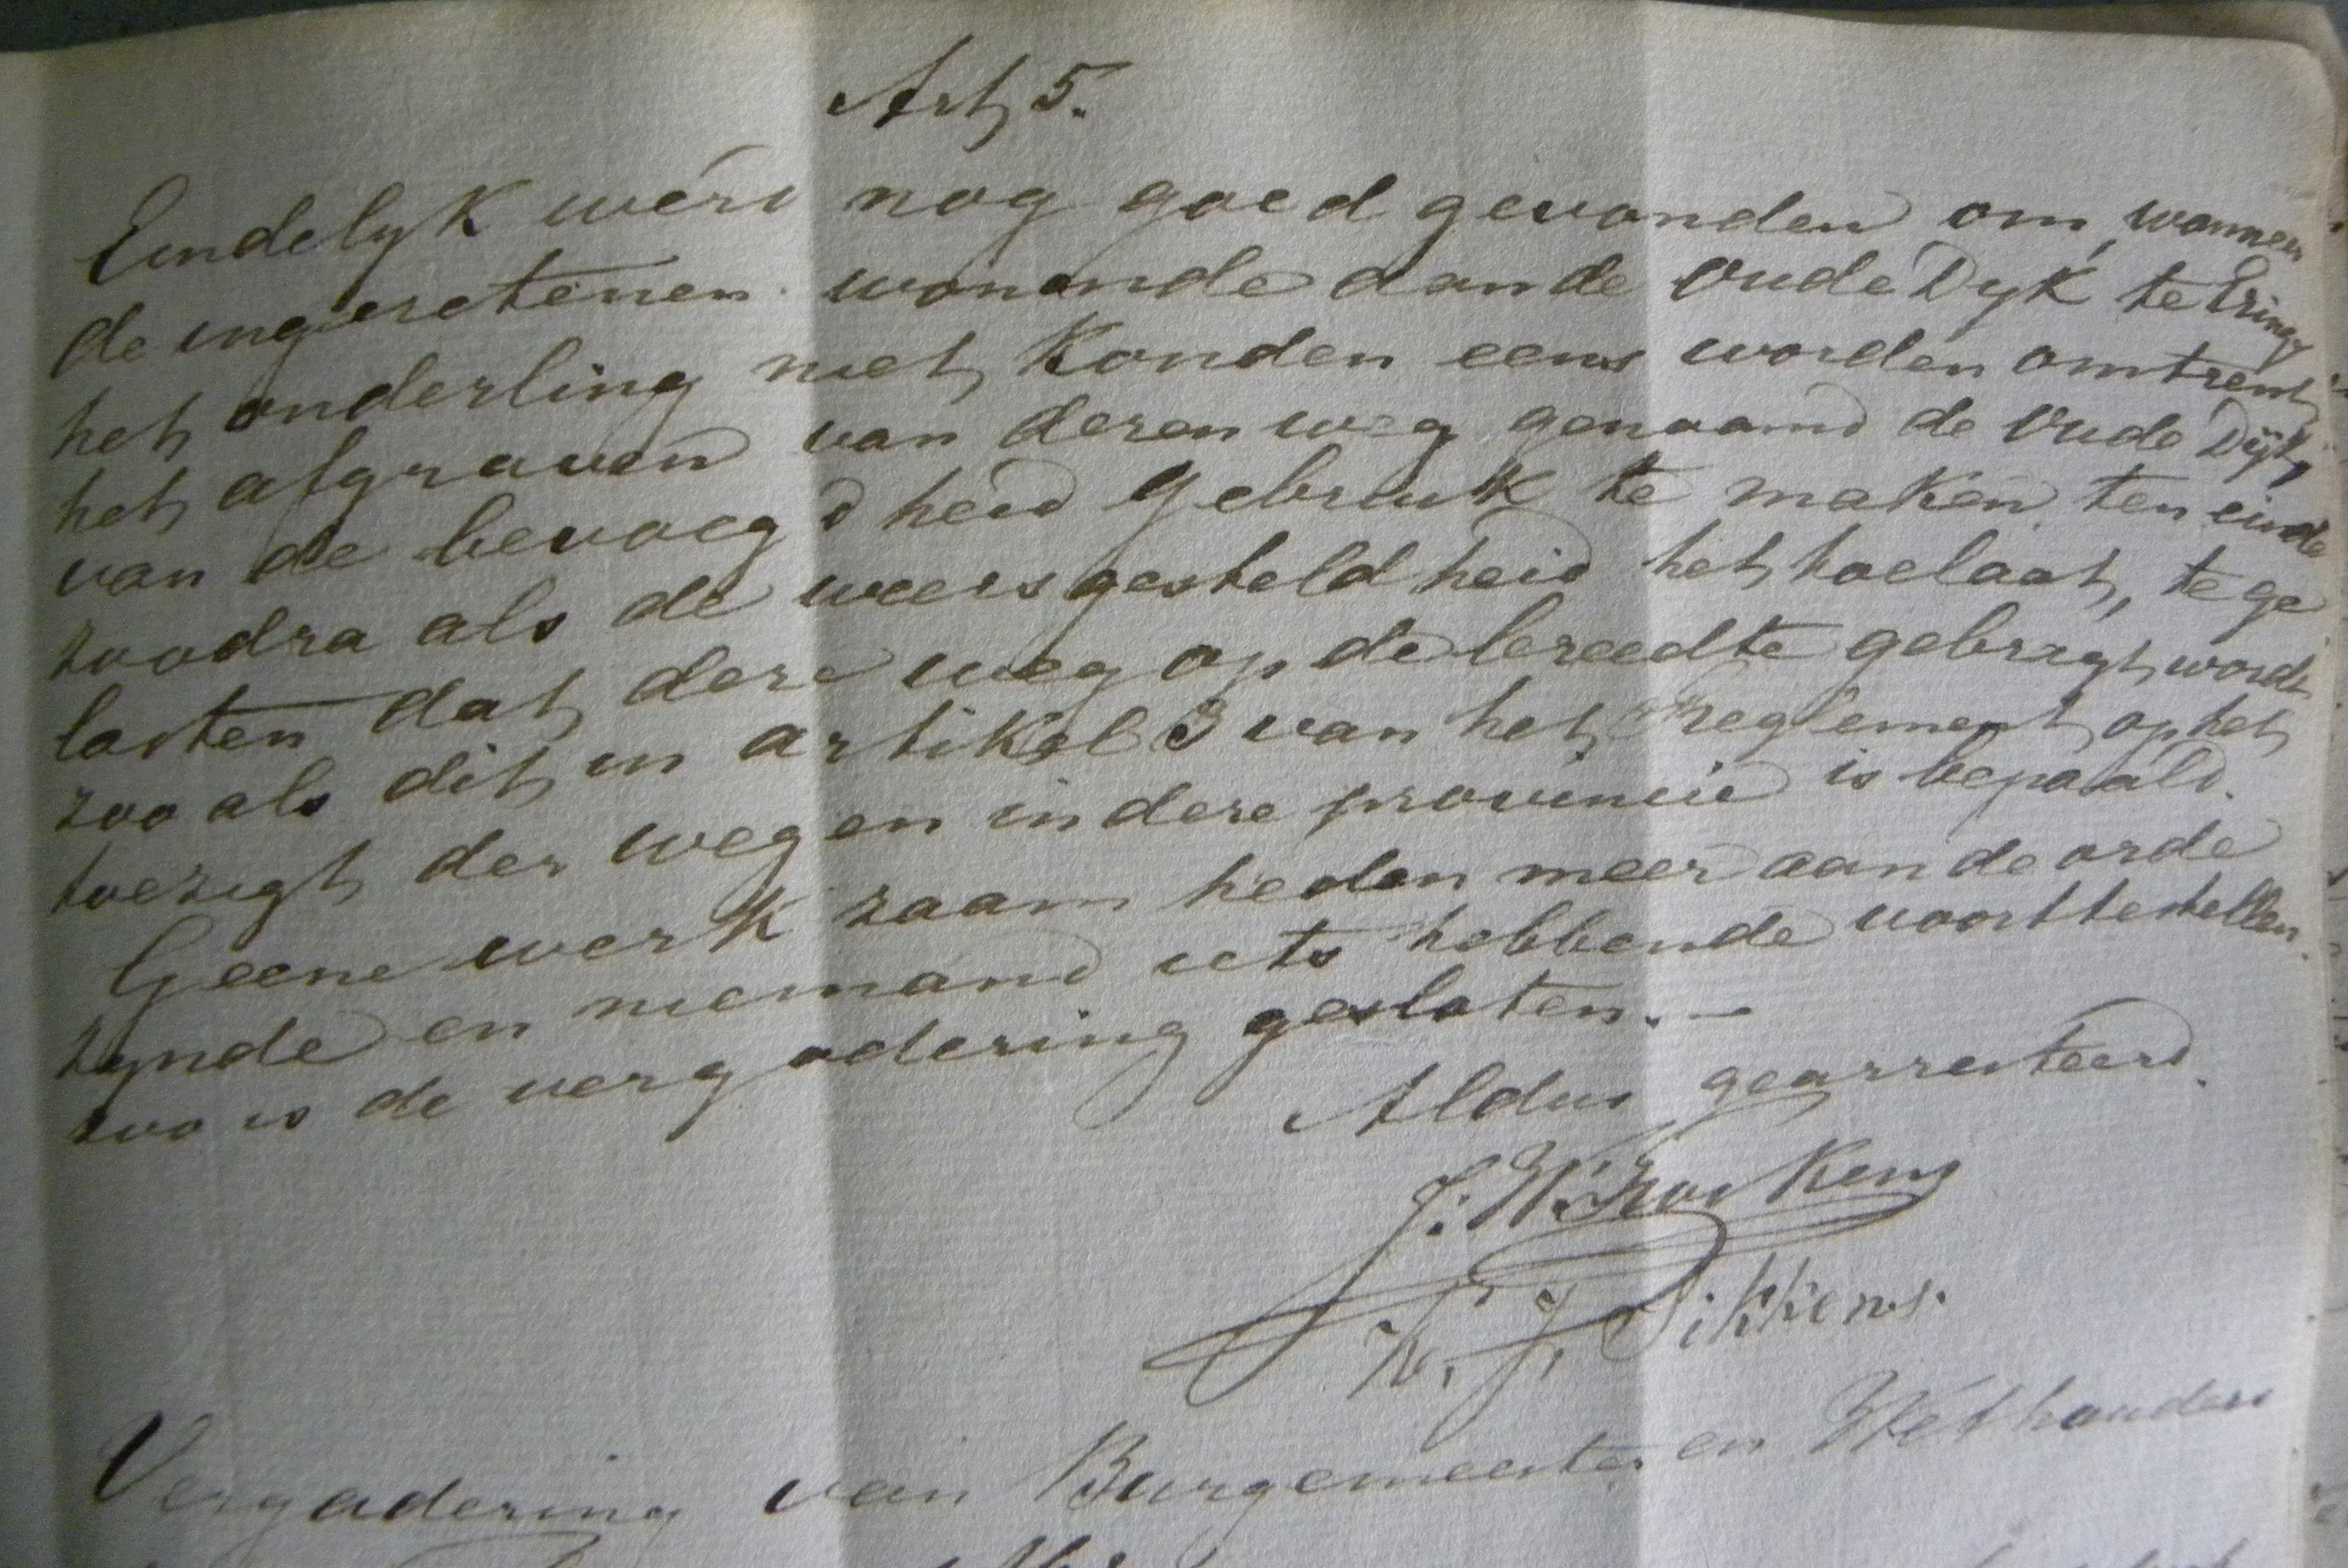 Art 5.
Eindelyk werd nog goed gevonden om, wanneer
de ingezetenen wonende aan de Oude Dyk te
het onderling niet konden eens worden omtrent
het afgraven van dezen weg genaamd de Oude Dijk,
van de bevoegdheid gebruik te maken ten einde
zoodra als de weersgesteldheid het toelaat, te ge
lasten dat deze weg op de breedte gebragt worde
zoo als dit in artikel 3 van het reglement op het
toezigt der wegen in deze provincie is bepaald.
Geene werkzaamheden meer aan de orde
zynde en niemand iets hebbende voortestellen.
zoo is de vergadering gesloten. —
Aldus gearresteerd.
J: W.
W. J. Dikkens.
Vergadering van Burgemeester en Wethouders